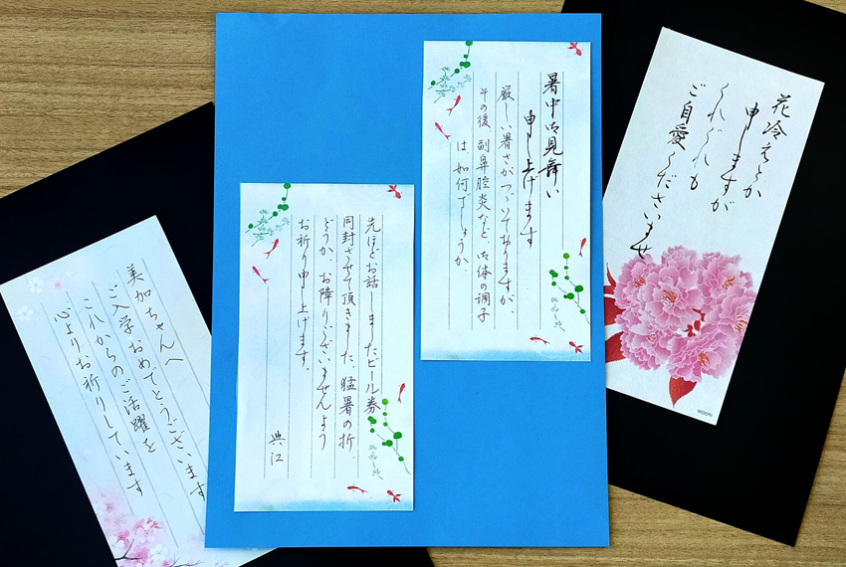 花冷えとか
申しますが
くれぐれも
ご自愛くださいませ
暑中御見舞い
申し上げます
厳しい暑さがつづいておりますが、
その後 副鼻腔炎など、御体の調子
は如何でしょうか。
先ほどお話しましたビール券
同封させて頂きました。猛暑の折、
どうか、お障りございませんよう
お祈り申し上げます。
典江
美加ちゃんへ
ご入学おめでとうございます
これからのご活躍を
心よりお祈りしています